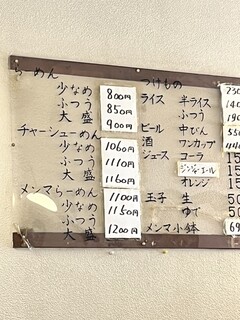 らーめん
少なめ 800円
ふつう 850円
大盛 900円
チャーシューめん
少なめ 1060円
ふつう 1110円
大盛 1160円
メンマらーめん
少なめ 1100円
ふつう 1150円
大盛 1200円
つけもの
ライス 半ライス
ふつう
ビール 中びん
酒 ワンカップ
ジュース コーラ
ジンジャエール
オレンジ
玉子 生
ゆで
メンマ小鉢